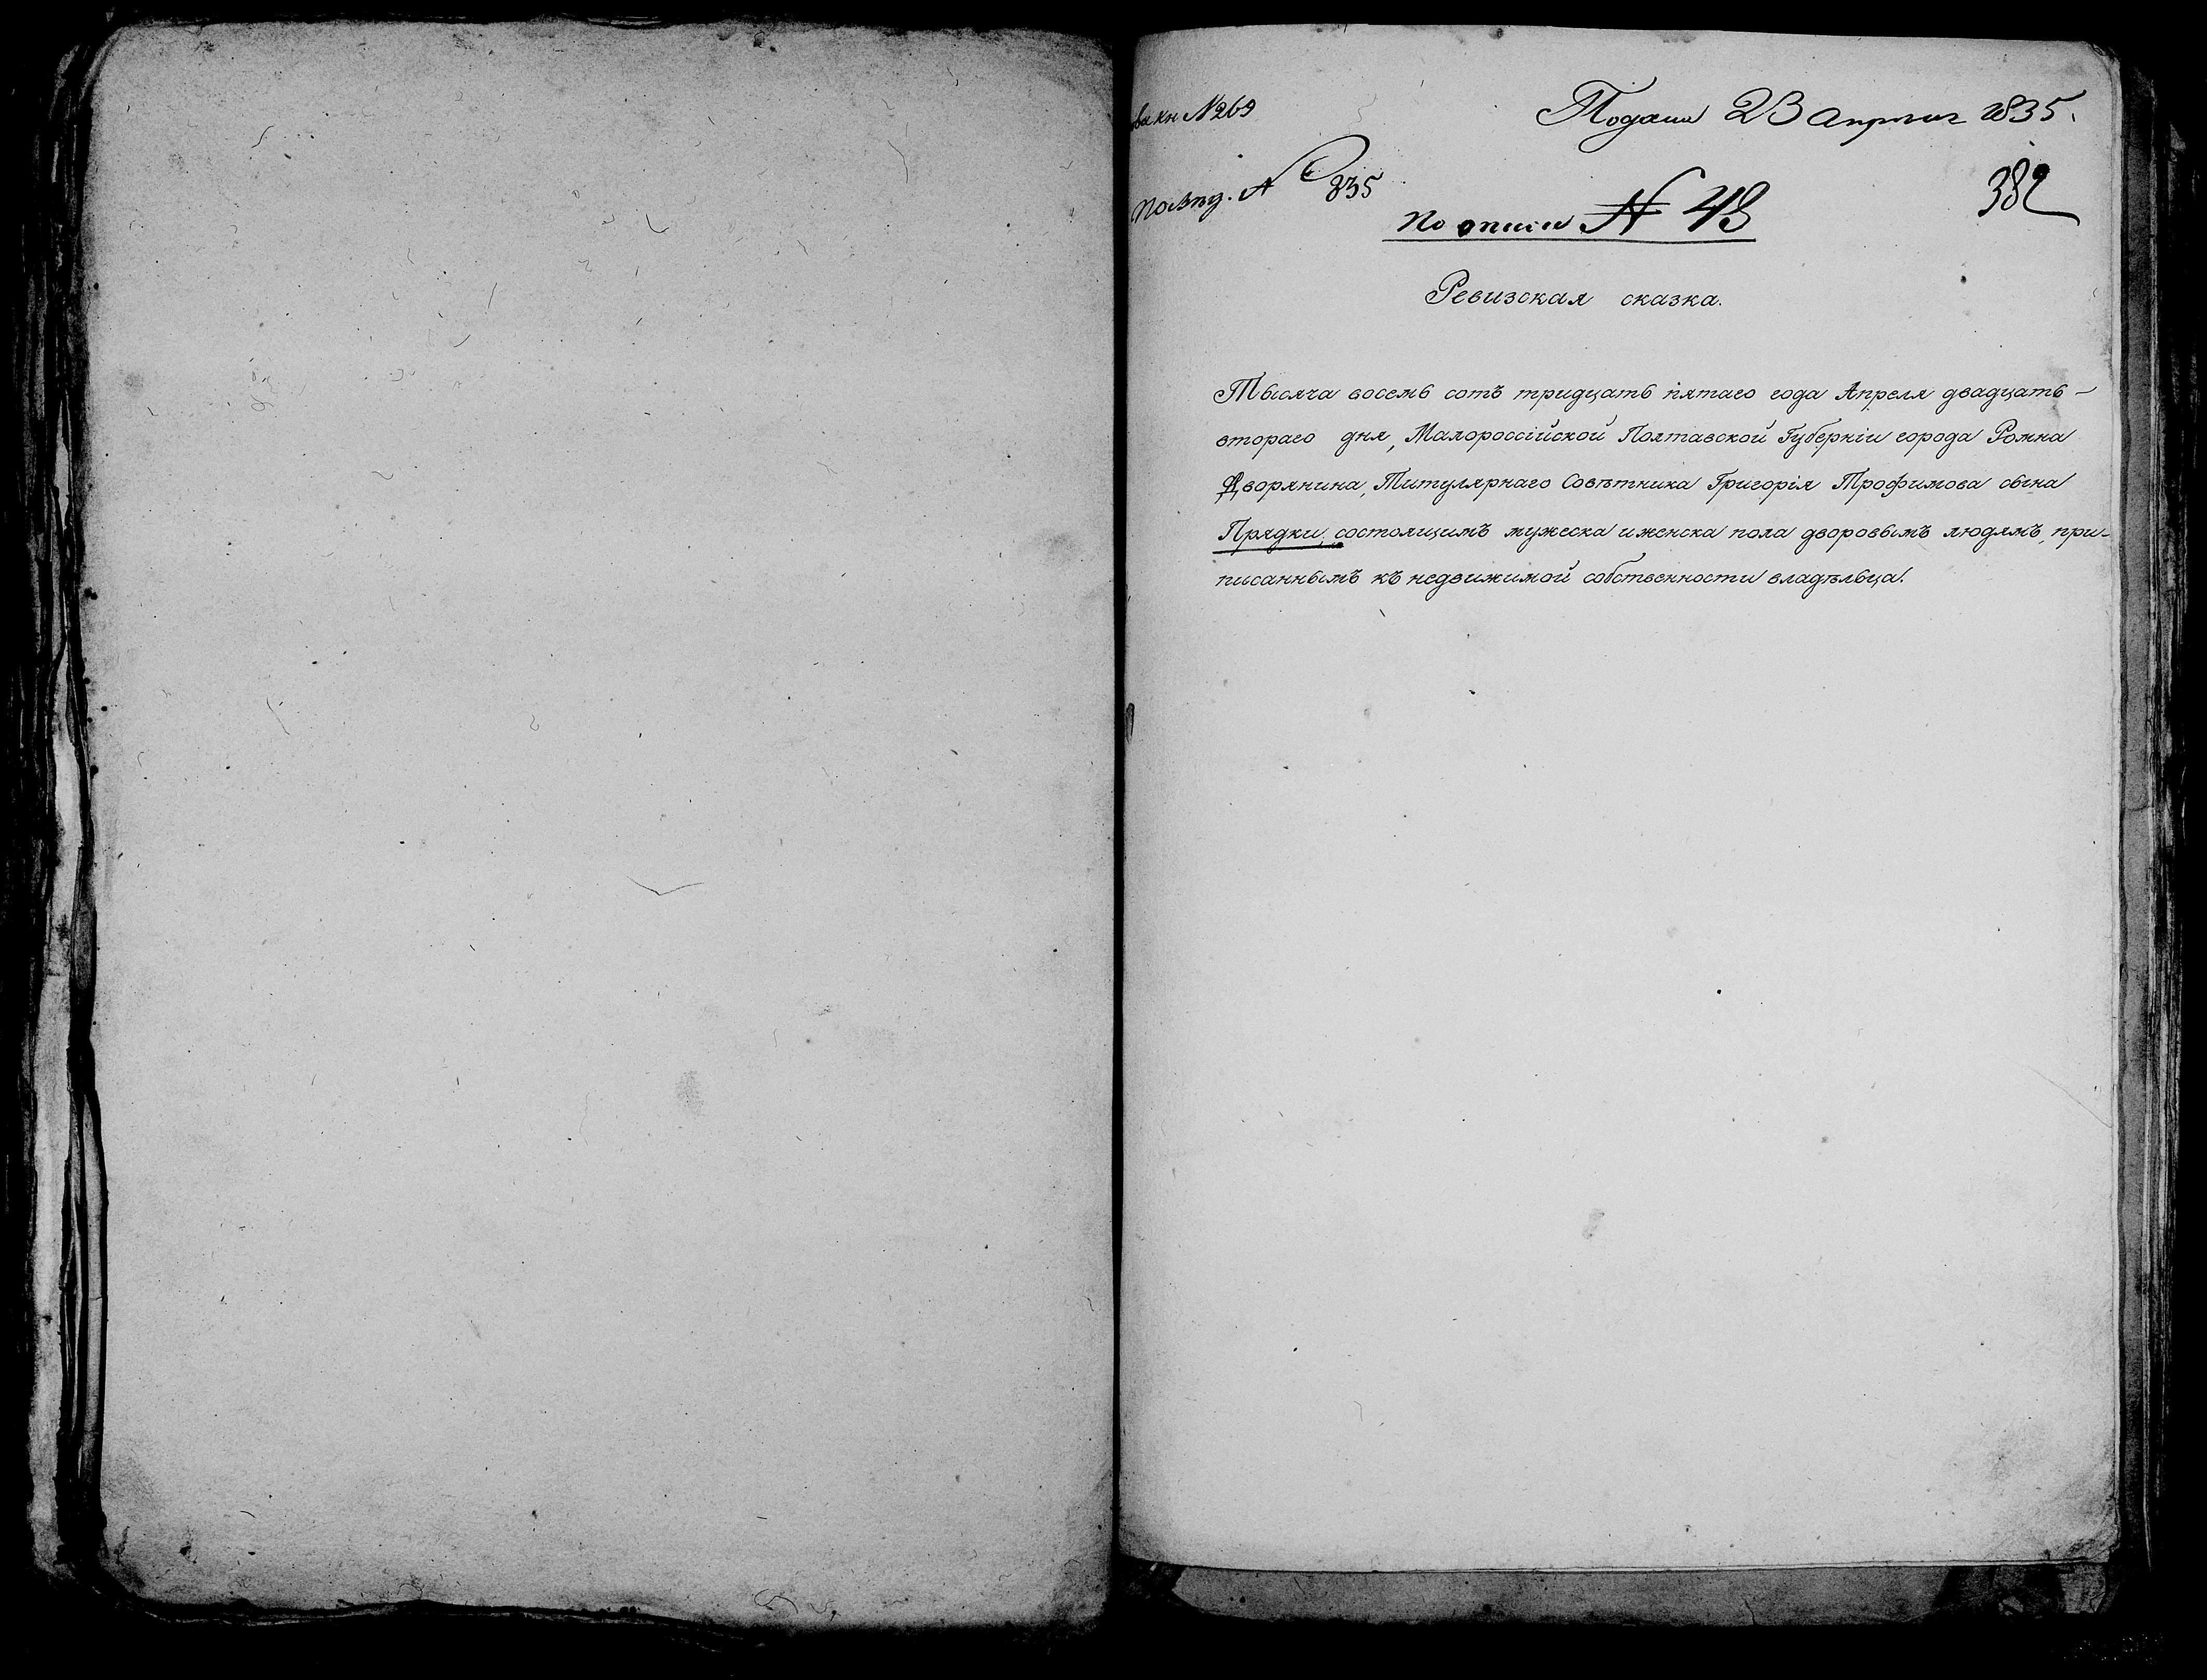 Подана 23 апреля 1835.
кн № 269
№ 835
382
По описи № 43
Ревизская сказка.
Тысяча восемь сотъ тридцать пятаго года Апреля двадцать –
втораго дня, Малороссійской Полтавской Губерніи города Ромна
Дворянина, Титулярнаго Совѣтника Григорія Трофимова сына
Прядки, состоящимъ мужеска и женска пола дворовымъ людямъ, при-
писаннымъ къ недвижимой собственности владѣльца.